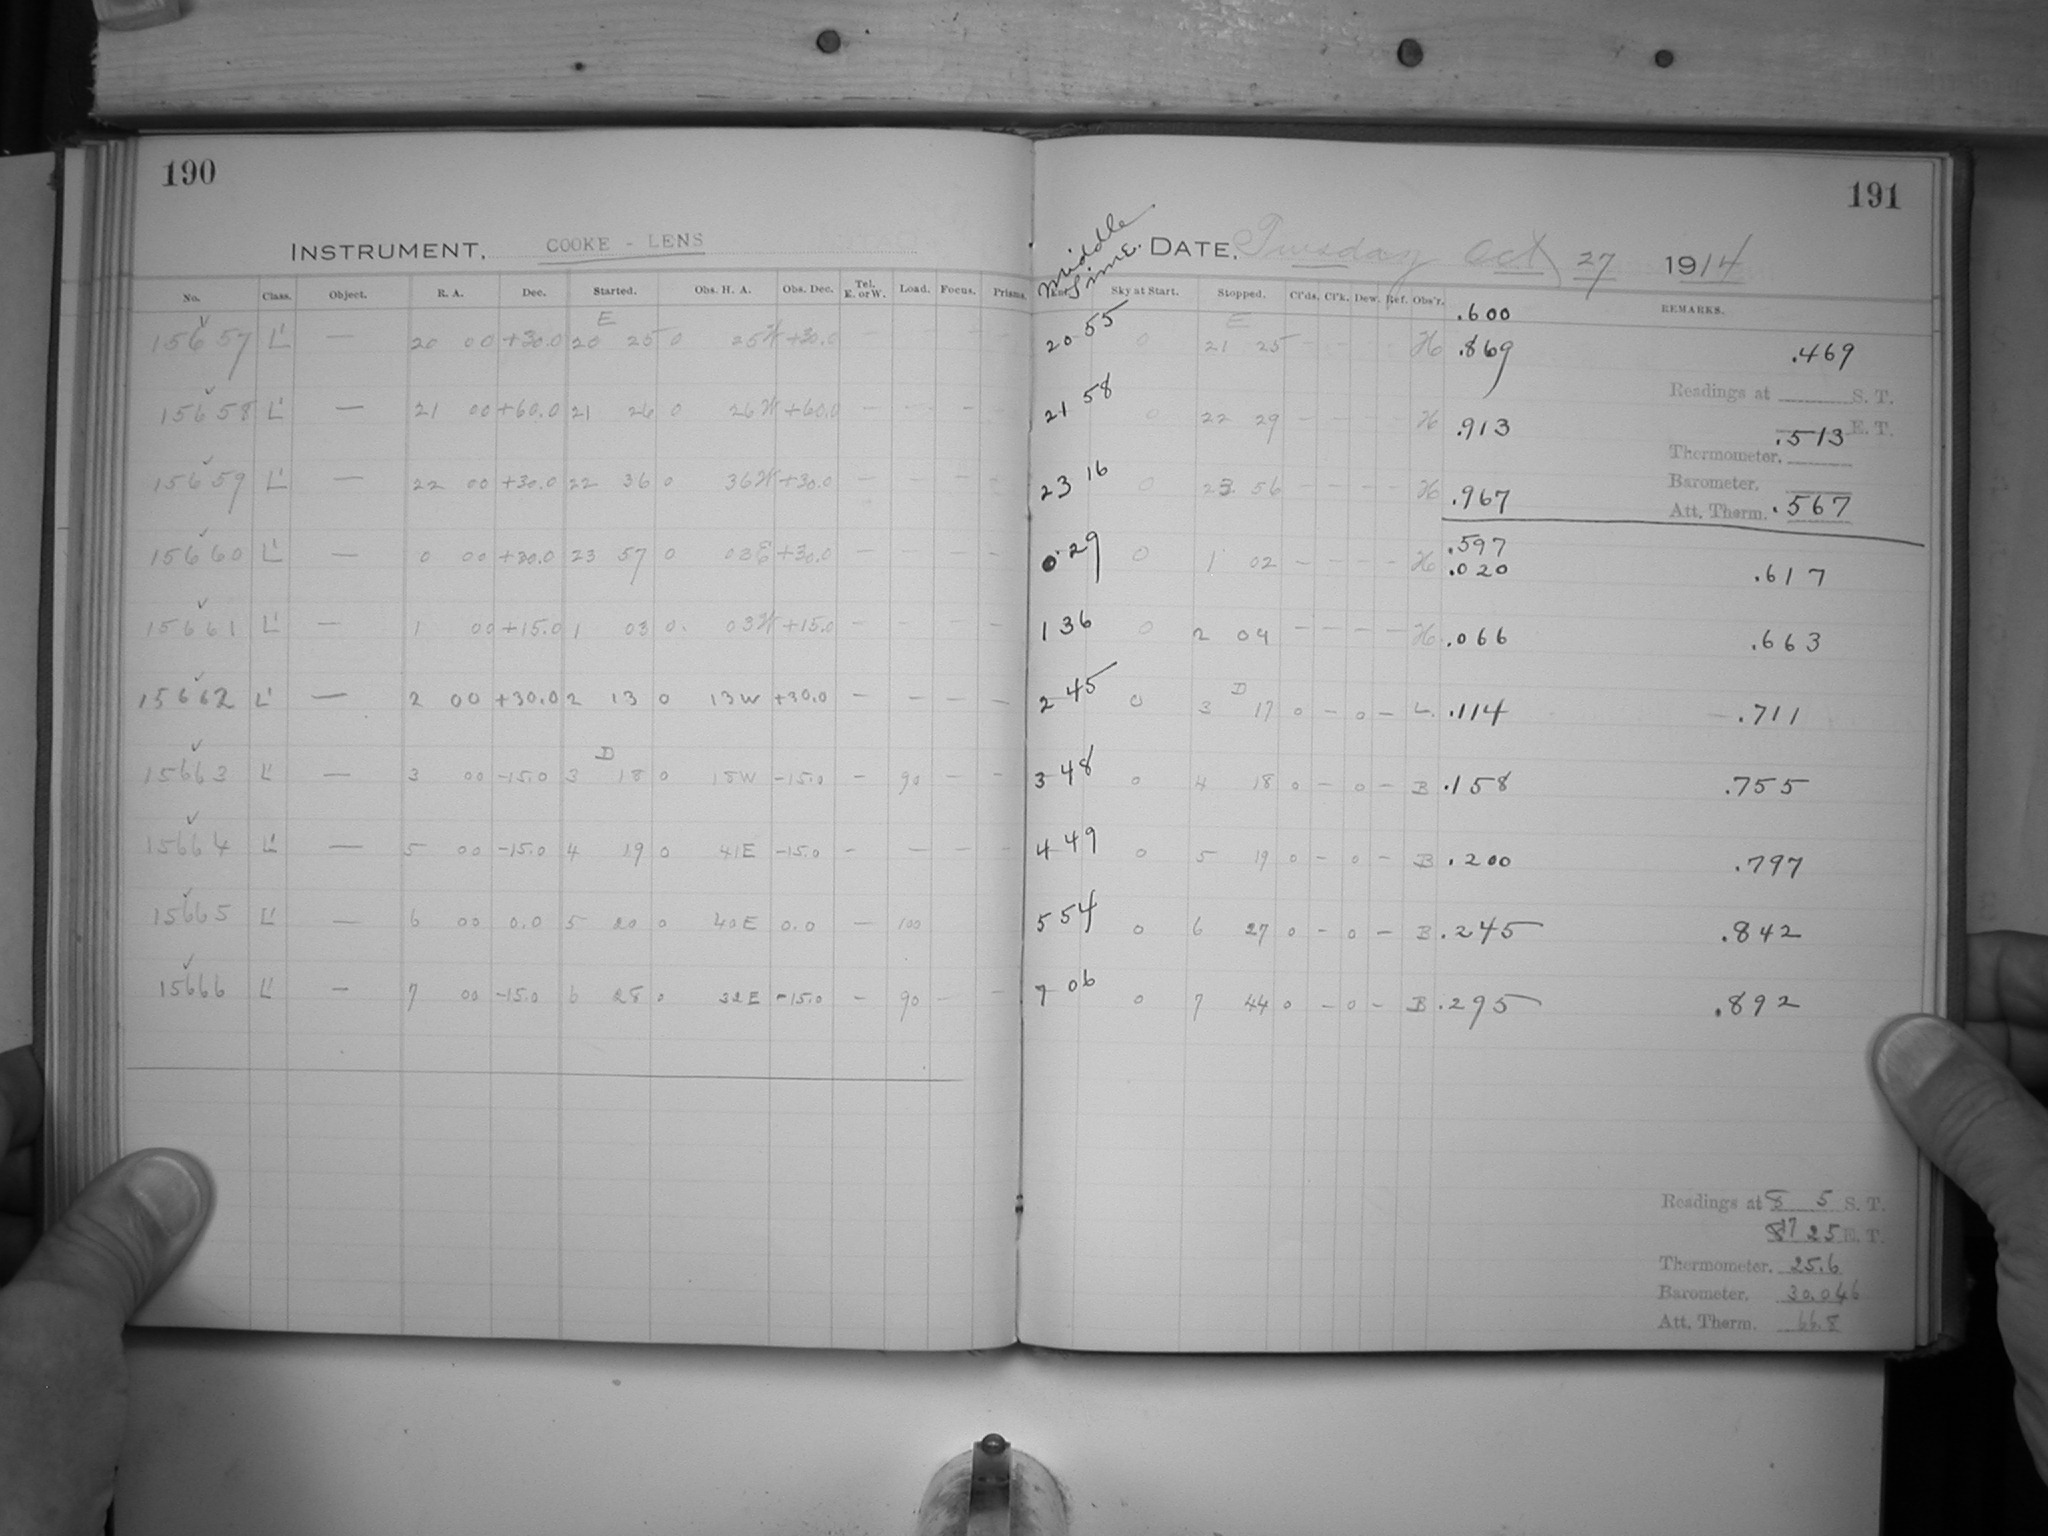 190
191
INSTRUMENT, COOKE - LENS
Middle Time.
DATE, Tuesday Oct 27 1914
No. Class. Object. R. A. Dec. Started. Obs. H. A. Obs. Dec. Tel. E. or W. Load. Focus. Prisms.
Sky at Start. Stopped. Cl'ds. Cl'k. Dew. Ref. Obs'r. REMARKS.
.600
E E
15657 L' — 20 00 +30.0 20 25 0 25W +30.0 — — — 20 55 0 21 25 - - - H .869 .469
Readings at S. T.
15658 L' — 21 00 +60.0 21 26 0 26W +60.0 — — — — 21 58 0 22 29 — — — — H .913 .513 E. T.
Thermometer.
Barometer.
15659 L' — 22 00 +30.0 22 36 0 36W +30.0 — — — — 23 16 0 23 56 — — — — H .967 .567
Att. Therm.
.597
15660 L' — 0 00 +30.0 23 57 0 03E +30.0 — — — 0 29 0 1 02 — — — — H .020 .617
15661 L' — 1 00 +15.0 1 03 0 03W +15.0 — — — — 1 36 0 2 04 — — — — H .066 .663
D
15662 L' — 2 00 +30.0 2 13 0 13W +30.0 — — — — 2 45 0 3 17 0 — 0 — L. .114 .711
D
15663 L' — 3 00 -15.0 3 18 0 18W -15.0 — 90 — — 3 48 0 4 18 0 — 0 — B .158 .755
15664 L' — 5 00 -15.0 4 19 0 41E -15.0 - — — — 4 49 0 5 19 0 - 0 — B .200 .797
15665 L' — 6 00 0.0 5 20 0 40E 0.0 — 100 5 54 0 6 27 0 - 0 — B .245 .842
15666 L' — 7 00 -15.0 6 28 0 32E -15.0 — 90 — — 7 06 0 7 44 0 - 0 - B .295 .892
Readings at 8 5 S. T.
17 25 E. T.
Thermometer. 25.6
Barometer. 30.046
Att. Therm. 66.8